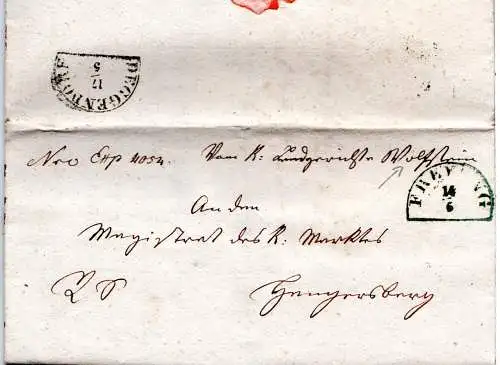 DEGGENDORF
17
5
Nro Exp 4054. Vom K: Landgerichte Wolfstein
FREYUNG
14
6
An den
Magistrat des K: Marktes
Hengersberg